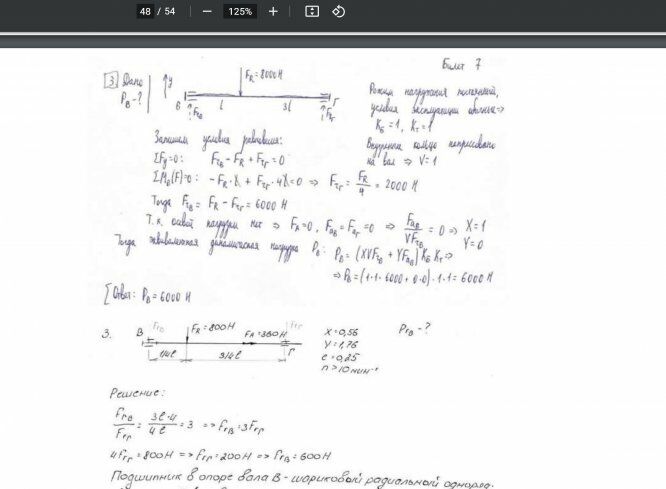 48 / 54
125%
Билет 7
3. Дано
P_B - ?
y
B
F_R = 8000 H
l
3l
Г
F_rB
F_rГ
Режим нагружения постоянный,
условия эксплуатации обычные ⇒
K_Б = 1, K_T = 1
Внутреннее кольцо
на вал ⇒ V = 1
Запишем условия равновесия:
ΣF_y = 0: F_rB - F_R + F_rГ = 0
ΣM_B(F) = 0: -F_R · l + F_rГ · 4l = 0 ⇒ F_rГ = F_R/4 = 2000 H
Тогда F_rB = F_R - F_rГ = 6000 H
Т.к. осевой нагрузки нет ⇒ F_A = 0, F_aB = F_aГ = 0 ⇒ F_aB/VF_rB = 0 ⇒ X = 1
Y = 0
Тогда эквивалентная динамическая нагрузка P_B: P_B = (XVF_rB + YF_aB) K_Б K_T ⇒
⇒ P_B = (1·1·6000 + 0·0)·1·1 = 6000 H
Ответ: P_B = 6000 H
3.
B
F_rB
F_R = 800H
F_A = 360H
F_rГ
Г
1/4l
3/4l
X = 0,56
Y = 1,76
e = 0,25
n > 10 мин⁻¹
P_rB - ?
Решение:
F_rB/F_rГ = 3l·4/4l = 3 => F_rB = 3F_rГ
4F_rГ = 800H => F_rГ = 200H => F_rB = 600H
Подшипник в опоре вала B - шариковый радиальный одноряд-